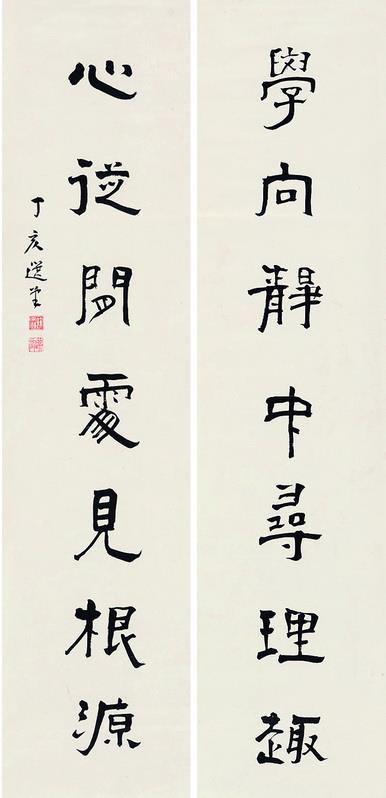 學向靜中尋理趣
心從閒處見根源
丁亥選堂